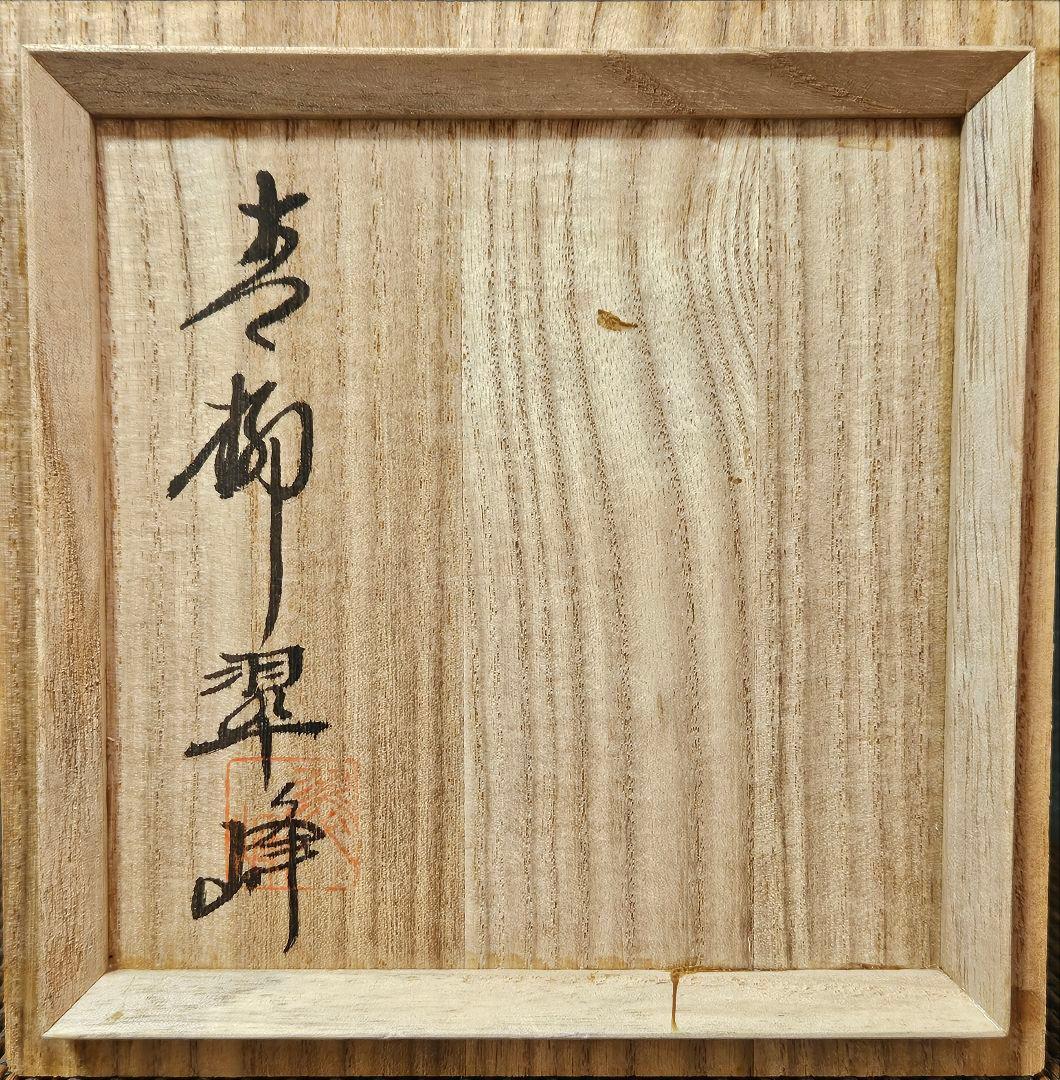 青柳翠峰